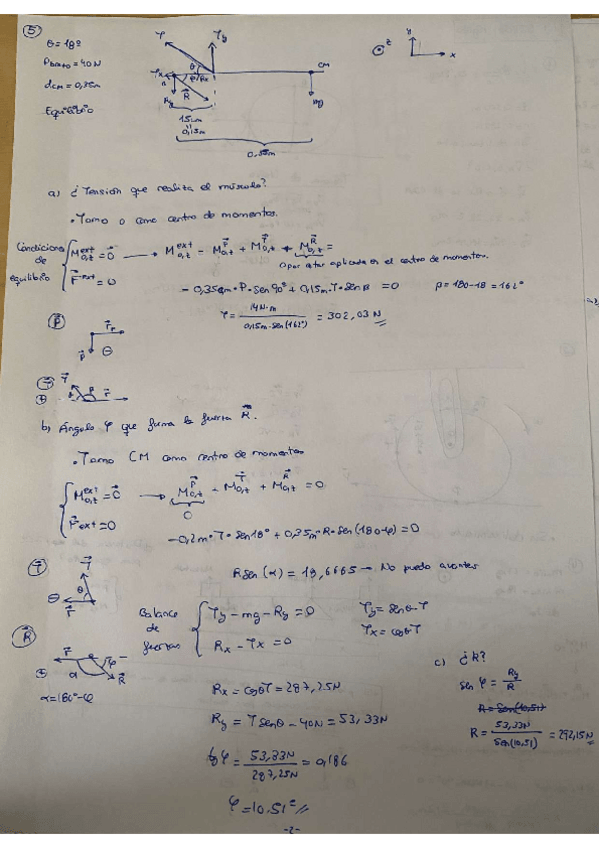 ⑤
θ=18º
P_brazo=40N
d_CM=0,35m
Equilibrio
T
Ty
CM
Tx
θ
φ
Rx
Ry
R
mg
15cm
0,15m
0,35m
z
y
x
a) ¿Tensión que realiza el músculo?
• Tomo o como centro de momentos.
Condiciones de equilibrio
M_{o,z}^{ext} = 0 → M_{o,z}^{ext} = M_{o,z}^{P} + M_{o,z}^{T} + M_{o,z}^{R} =
F^{ext} = 0
0 por estar aplicada en el centro de momentos.
-0,35m·P·sen90º + 0,15m·T·senβ = 0 β=180-18=162º
T = 14N·m / 0,15m·sen(162º) = 302,03N
P
r_P
P ⊖
T
⊕
T
β
r
b) Ángulo φ que forma la fuerza R.
• Tomo CM como centro de momentos
M_{o,z}^{ext} = 0 → M_{o,z}^{P} - M_{o,z}^{T} + M_{o,z}^{R} = 0
0
F^{ext}=0
-0,2m·T·sen18º + 0,35m·R·sen(180-φ)=0
T
T
⊖
θ
r
R sen(α) = 18,6665 → No puedo avanzar
R
r
φ
⊕
α
R
α=180º-φ
Balance de fuerzas
Ty - mg - Ry = 0 Ty = senθ·T
Rx - Tx = 0 Tx = cosθT
Rx = cosθT = 287,25N
Ry = T senθ - 40N = 53,33N
tgφ = 53,33N / 287,25N = 0,186
φ = 10,51º
c) ¿R?
sen φ = Ry / R
R = Sen(10,51)
R = 53,33N / Sen(10,51) = 292,15N
-2-